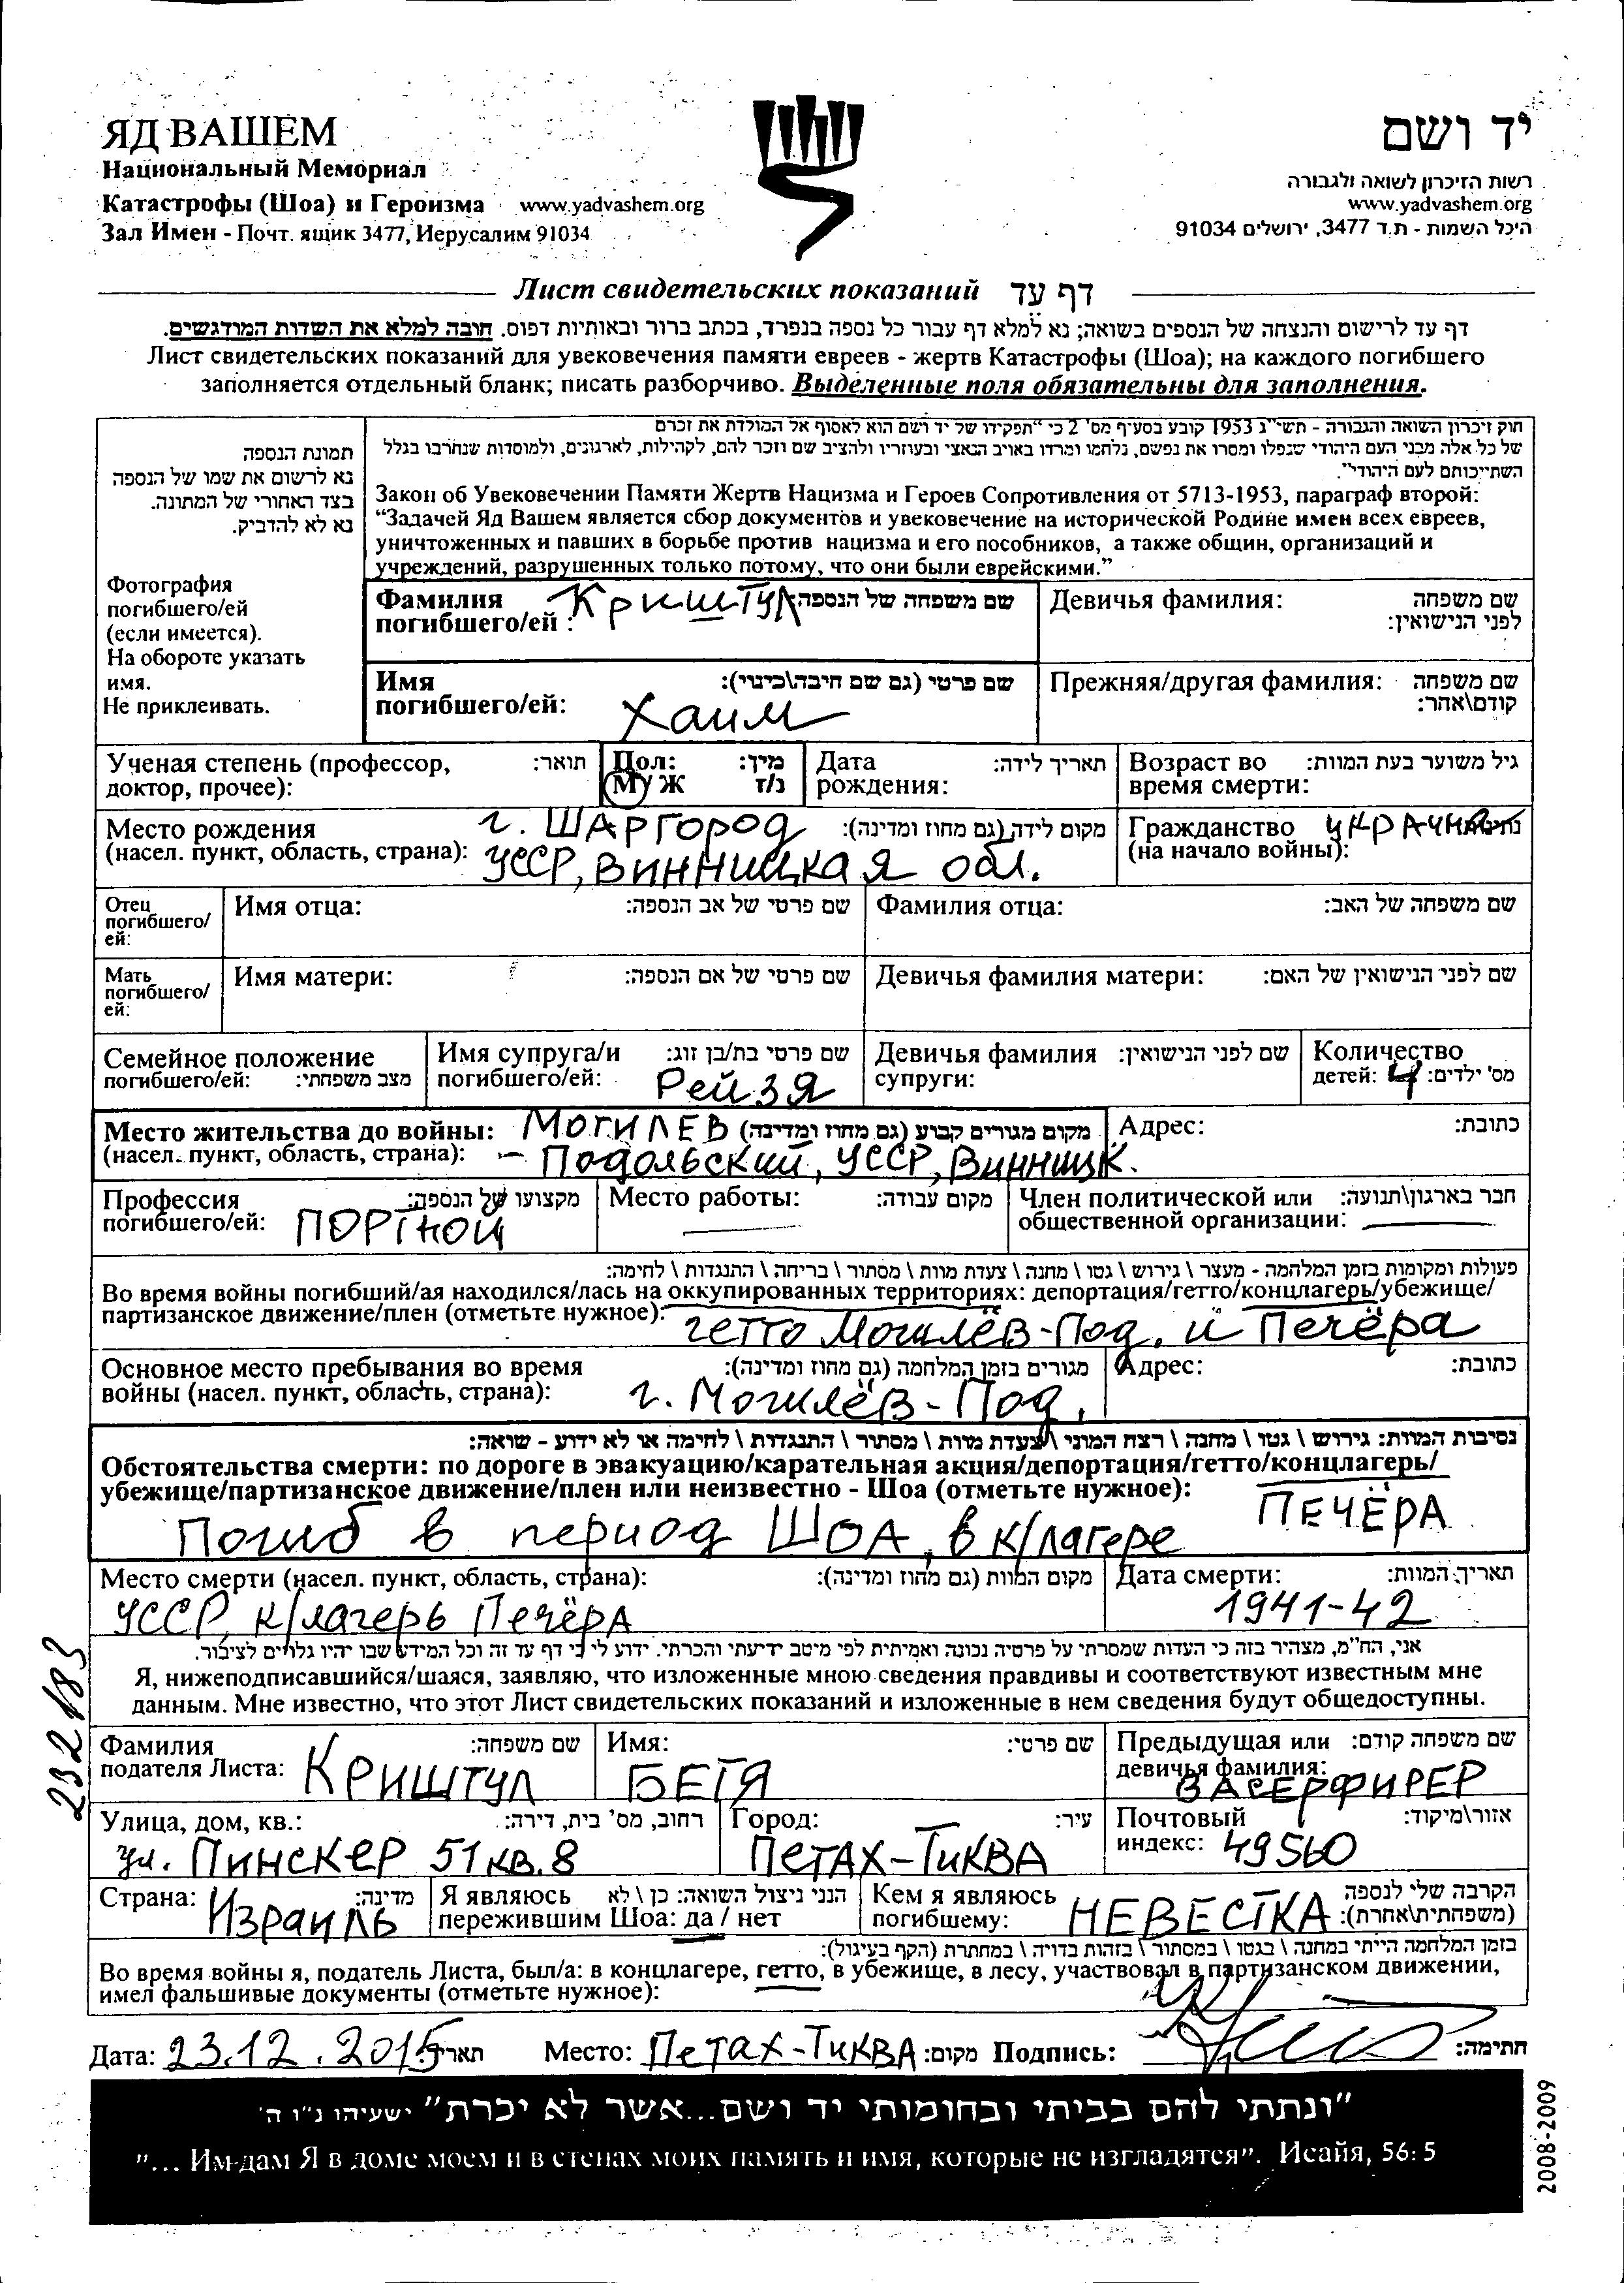 ЯД ВАШЕМ
Национальный Мемориал
Катастрофы (Шоа) и Героизма www.yadvashem.org
Зал Имен - Почт. ящик 3477, Иерусалим 91034
יד ושם
רשות הזיכרון לשואה ולגבורה
www.yadvashem.org
היכל השמות - ת.ד 3477, ירושלים 91034
Лист свидетельских показаний דף עד
דף עד לרישום והנצחה של הנספים בשואה; נא למלא דף עבור כל נספה בנפרד, בכתב ברור ובאותיות דפוס. חובה למלא את השדות המודגשים.
Лист свидетельских показаний для увековечения памяти евреев - жертв Катастрофы (Шоа); на каждого погибшего
заполняется отдельный бланк; писать разборчиво. Выделенные поля обязательны для заполнения.
תמונת הנספה
נא לרשום את שמו של הנספה
בצד האחורי של המתונה.
נא לא להדביק.
Фотография
погибшего/ей
(если имеется).
На обороте указать
имя.
Не приклеивать.
חוק זיכרון השואה והגבורה - תשי"ג 1953 קובע בסעיף מס' 2 כי "תפקידו של יד ושם הוא לאסוף אל המולדת את זכרם
של כל אלה מבני העם היהודי שנפלו ומסרו את נפשם, נלחמו ומרדו באויב הנאצי ובעוזריו ולהציב שם וזכר להם, לקהילות, לארגונים, ולמוסדות שנחרבו בגלל
השתייכותם לעם היהודי".
Закон об Увековечении Памяти Жертв Нацизма и Героев Сопротивления от 5713-1953, параграф второй:
"Задачей Яд Вашем является сбор документов и увековечение на исторической Родине имен всех евреев,
уничтоженных и павших в борьбе против нацизма и его пособников, а также общин, организаций и
учреждений, разрушенных только потому, что они были еврейскими."
Фамилия погибшего/ей : Криштул שם משפחה של הנספה
Девичья фамилия: שם משפחה לפני הנישואין:
Имя погибшего/ей: Хаим שם פרטי (גם שם חיבה\כינוי):
Прежняя/другая фамилия: שם משפחה קודם\אחר:
Ученая степень (профессор, доктор, прочее): תואר:
Пол: М/Ж מין: ז/נ
Дата рождения: תאריך לידה:
Возраст во время смерти: גיל משוער בעת המוות:
Место рождения (насел. пункт, область, страна): г. ШАРГОРОД מקום לידה (גם מחוז ומדינה):
УССР, ВИННИЦКАЯ обл.
Гражданство (на начало войны):
Отец погибшего/ей:
Имя отца: שם פרטי של אב הנספה:
Фамилия отца: שם משפחה של האב:
Мать погибшего/ей:
Имя матери: שם פרטי של אם הנספה:
Девичья фамилия матери: שם לפני הנישואין של האם:
Семейное положение погибшего/ей: מצב משפחתי:
Имя супруга/и погибшего/ей: Рейзя שם פרטי בת/בן זוג:
Девичья фамилия супруги: שם לפני הנישואין:
Количество детей: 4 מס' ילדים:
Место жительства до войны: МОГИЛЕВ מקום מגורים קבוע (גם מחוז ומדינה)
(насел. пункт, область, страна): - Подольский, УССР, Винницк.
Адрес: כתובת:
Профессия погибшего/ей: ПОРТНОЙ מקצועו של הנספה:
Место работы: — מקום עבודה:
Член политической или общественной организации: — חבר בארגון\תנועה:
פעולות ומקומות בזמן המלחמה - מעצר \ גירוש \ גטו \ מחנה \ צעדת מוות \ מסתור \ בריחה \ התנגדות \ לחימה:
Во время войны погибший/ая находился/лась на оккупированных территориях: депортация/гетто/концлагерь/убежище/
партизанское движение/плен (отметьте нужное): гетто Могилёв-Под. и Печёра
Основное место пребывания во время מגורים בזמן המלחמה (גם מחוז ומדינה):
войны (насел. пункт, область, страна): г. Могилёв-Под.
Адрес: כתובת:
נסיבות המוות: גירוש \ גטו \ מחנה \ רצח המוני \ צעדת מוות \ מסתור \ התנגדות \ לחימה או לא ידוע - שואה:
Обстоятельства смерти: по дороге в эвакуацию/карательная акция/депортация/гетто/концлагерь/
убежище/партизанское движение/плен или неизвестно - Шоа (отметьте нужное):
Погиб в период ШОА, в к/лагере ПЕЧЁРА
Место смерти (насел. пункт, область, страна): מקום המוות (גם מחוז ומדינה):
УССР, к/лагерь Печёра
Дата смерти: תאריך המוות:
1941-42
אני, הח"מ, מצהיר בזה כי העדות שמסרתי על פרטיה נכונה ואמיתית לפי מיטב ידיעתי והכרתי. ידוע לי כי דף עד זה וכל המידע שבו יהיו גלויים לציבור.
Я, нижеподписавшийся/шаяся, заявляю, что изложенные мною сведения правдивы и соответствуют известным мне
данным. Мне известно, что этот Лист свидетельских показаний и изложенные в нем сведения будут общедоступны.
232183
Фамилия подателя Листа: Криштул שם משפחה:
Имя: БЕТЯ שם פרטי:
Предыдущая или девичья фамилия: ВАСЕРФИРЕР שם משפחה קודם:
Улица, дом, кв.: ул. ПИНСКЕР 51 кв. 8 רחוב, מס' בית, דירה:
Город: ПЕТАХ-ТИКВА עיר:
Почтовый индекс: 49560 אזור\מיקוד:
Страна: Израиль מדינה:
Я являюсь пережившим Шоа: да / нет הנני ניצול השואה: כן \ לא
Кем я являюсь погибшему: НЕВЕСТКА הקרבה שלי לנספה (משפחתית\אחרת):
בזמן המלחמה הייתי במחנה \ בגטו \ במסתור \ בזהות בדויה \ במחתרת (הקף בעיגול):
Во время войны я, податель Листа, был/а: в концлагере, гетто, в убежище, в лесу, участвовал в партизанском движении,
имел фальшивые документы (отметьте нужное):
Дата: 23.12.2015 תאריך: Место: Петах-Тиква מקום: Подпись: חתימה:
"ונתתי להם בביתי ובחומותי יד ושם...אשר לא יכרת" ישעיהו נ"ו ה'
"... Им дам Я в доме моем и в стенах моих память и имя, которые не изгладятся". Исайя, 56: 5
2008-2009